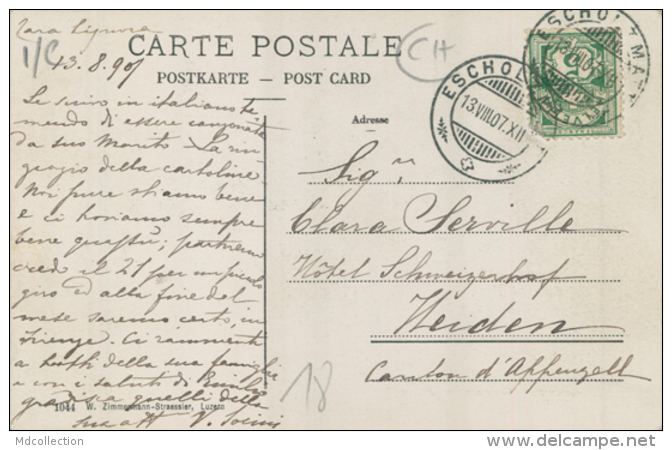 Cara Signora
I/C
13.8.907
CARTE POSTALE
POSTKARTE – POST CARD
CH
ESCHOLZMATT
ESCHOL
13.VIII.07.XII
Adresse
Le scrivo in italiano te-
mendo di essere canzonata
da suo Marito. La rin-
grazio della cartolina
Noi pure stiamo bene
e ci troviamo sempre
bene quassù; partiremo
credo il 21 per un piccolo
giro ed alla fine del
mese saremo certo, in
Firenze. Ci rammenti
a tutti della sua famiglia
e con i saluti di
gradisca quelli della
sua aff. V.
Sig.ra
Clara Serville
Hôtel Schweizerhof
Heiden
Canton d'Appenzell
18
1044 W. Zimmermann-Straessler, Luzern
Mdcollection